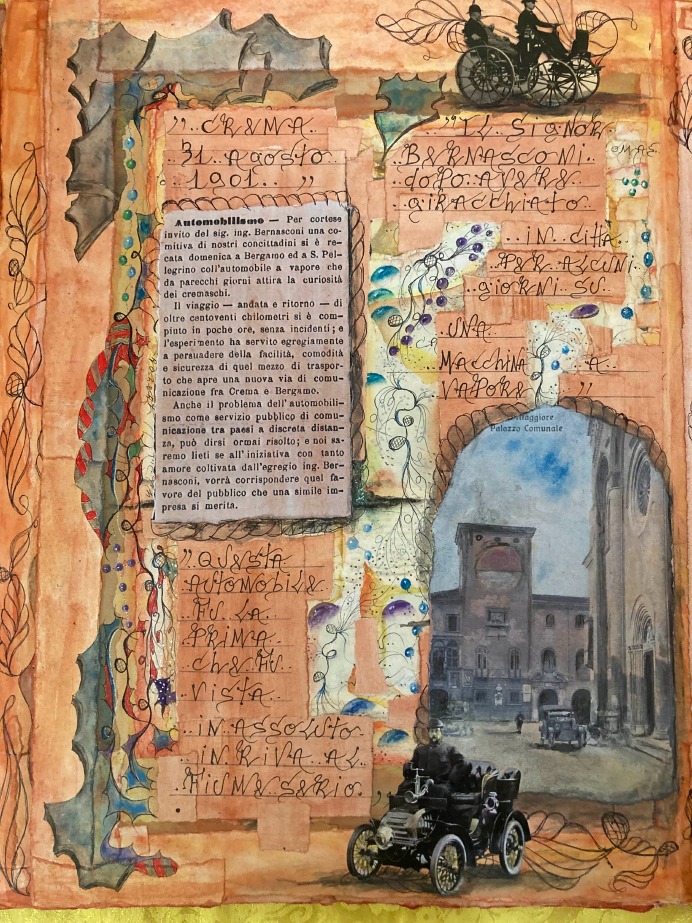 " CREMA
31 Agosto
1901.. "
Automobilismo — Per cortese
invito del sig. ing. Bernasconi una co-
mitiva di nostri concittadini si è re-
cata domenica a Bergamo ed a S. Pel-
legrino coll'automobile a vapore che
da parecchi giorni attira la curiosità
dei cremaschi.
Il viaggio — andata e ritorno — di
oltre centoventi chilometri si è com-
piuto in poche ore, senza incidenti; e
l'esperimento ha servito egregiamente
a persuadere della facilità, comodità
e sicurezza di quel mezzo di traspor-
to che apre una nuova via di comu-
nicazione fra Crema e Bergamo.
Anche il problema dell'automobili-
smo come servizio pubblico di comu-
nicazione tra paesi a discreta distan-
za, può dirsi ormai risolto; e noi sa-
remo lieti se all'iniziativa con tanto
amore coltivata dall'egregio ing. Ber-
nasconi, vorrà corrispondere quel fa-
vore del pubblico che una simile im-
presa si merita.
" QUESTA
AUTOMOBILE
FU LA
PRIMA
CHE FU
VISTA
IN ASSOLUTO
IN RIVA AL
FIUME SERIO.
"IL SIGNOR
BERNASCONI
DOPO AVERE
GIRACCHIATO
IN CITTÀ
PER ALCUNI
GIORNI SU
UNA
MACCHINA A
VAPORE "
Maggiore
Palazzo Comunale